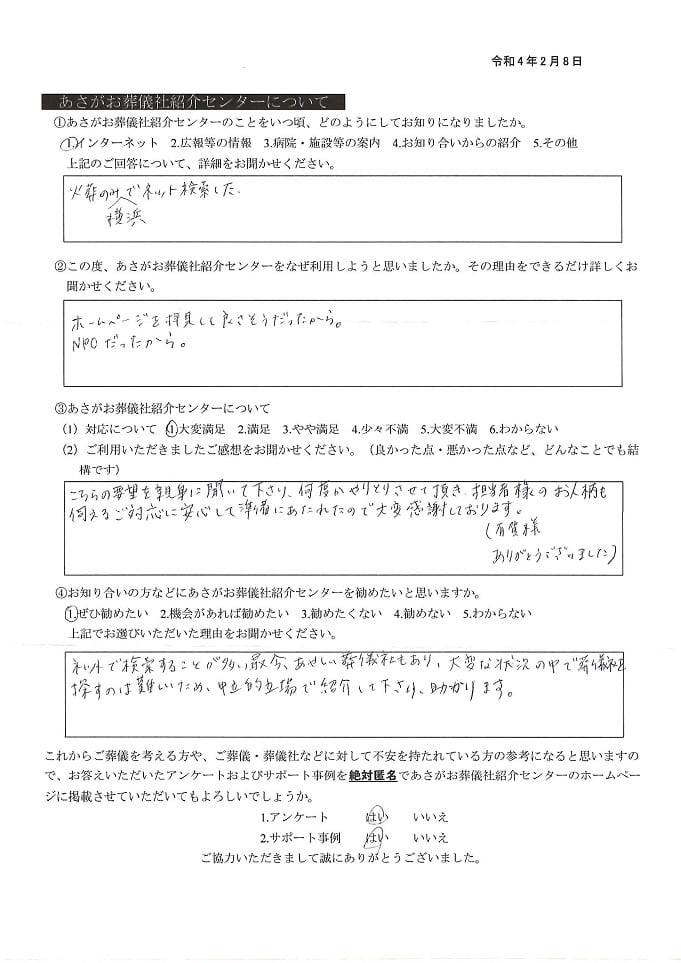 令和4年2月8日
あさがお葬儀社紹介センターについて
①あさがお葬儀社紹介センターのことをいつ頃、どのようにしてお知りになりましたか。
1.インターネット 2.広報等の情報 3.病院・施設等の案内 4.お知り合いからの紹介 5.その他
上記のご回答について、詳細をお聞かせください。
火葬のみでネット検索した.
横浜
②この度、あさがお葬儀社紹介センターをなぜ利用しようと思いましたか。その理由をできるだけ詳しくお
聞かせください。
ホームページを拝見して良さそうだったから。
NPOだったから。
③あさがお葬儀社紹介センターについて
(1) 対応について 1.大変満足 2.満足 3.やや満足 4.少々不満 5.大変不満 6.わからない
(2) ご利用いただきましたご感想をお聞かせください。（良かった点・悪かった点など、どんなことでも結
構です）
こちらの要望を親身に聞いて下さり、何度かやりとりさせて頂き、担当者様のお人柄も
伺えるご対応に安心して準備にあたれたので大変感謝しております。
(有賀様
ありがとうございました)
④お知り合いの方などにあさがお葬儀社紹介センターを勧めたいと思いますか。
1.ぜひ勧めたい 2.機会があれば勧めたい 3.勧めたくない 4.勧めない 5.わからない
上記でお選びいただいた理由をお聞かせください。
ネットで検索することが多い昨今、あやしい葬儀社もあり、大変な状況の中で葬儀社を
探すのは難しいため、中立的立場で紹介して下さり、助かります。
これからご葬儀を考える方や、ご葬儀・葬儀社などに対して不安を持たれている方の参考になると思いますの
で、お答えいただいたアンケートおよびサポート事例を絶対匿名であさがお葬儀社紹介センターのホームペー
ジに掲載させていただいてもよろしいでしょうか。
1.アンケート はい いいえ
2.サポート事例 はい いいえ
ご協力いただきまして誠にありがとうございました。